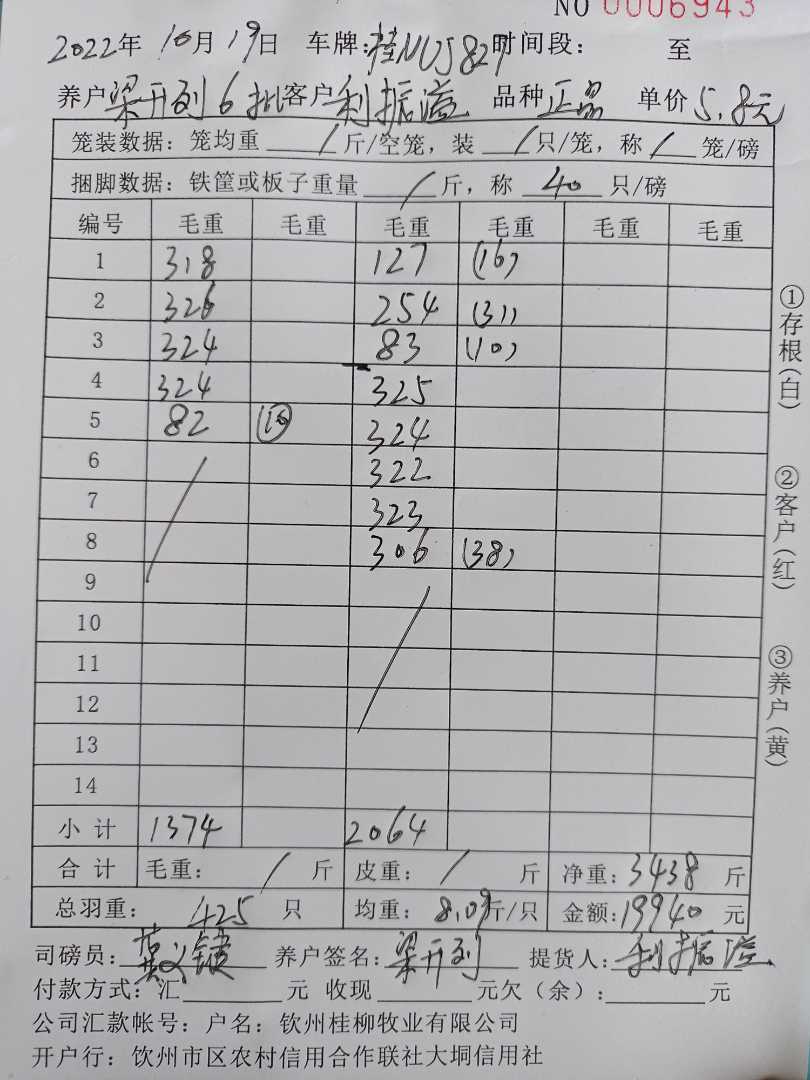 NO 0006943
2022年 10月 19日 车牌:桂NU5827时间段: 至
养户梁开列6批客户利振溢 品种正品 单价5.8元
笼装数据:笼均重 / 斤/空笼,装 / 只/笼,称 / 笼/磅
捆脚数据:铁筐或板子重量 / 斤,称 40 只/磅
编号 毛重 毛重 毛重 毛重 毛重 毛重
1 318 127 (16)
2 326 254 (31)
3 324 83 (10)
4 324 325
5 82 (10) 324
6 322
7 323
8 306 (38)
9
10
11
12
13
14
小计 1374 2064
合计 毛重: / 斤 皮重: / 斤 净重:3438 斤
总羽重: 425 只 均重: 8.09斤/只 金额:19940 元
司磅员: 养户签名:梁开列 提货人:利振溢
付款方式:汇 元 收现 元欠(余): 元
公司汇款帐号:户名:钦州桂柳牧业有限公司
开户行:饮州市区农村信用合作联社大垌信用社
①存根(白)
②客户(红)
③养户(黄)